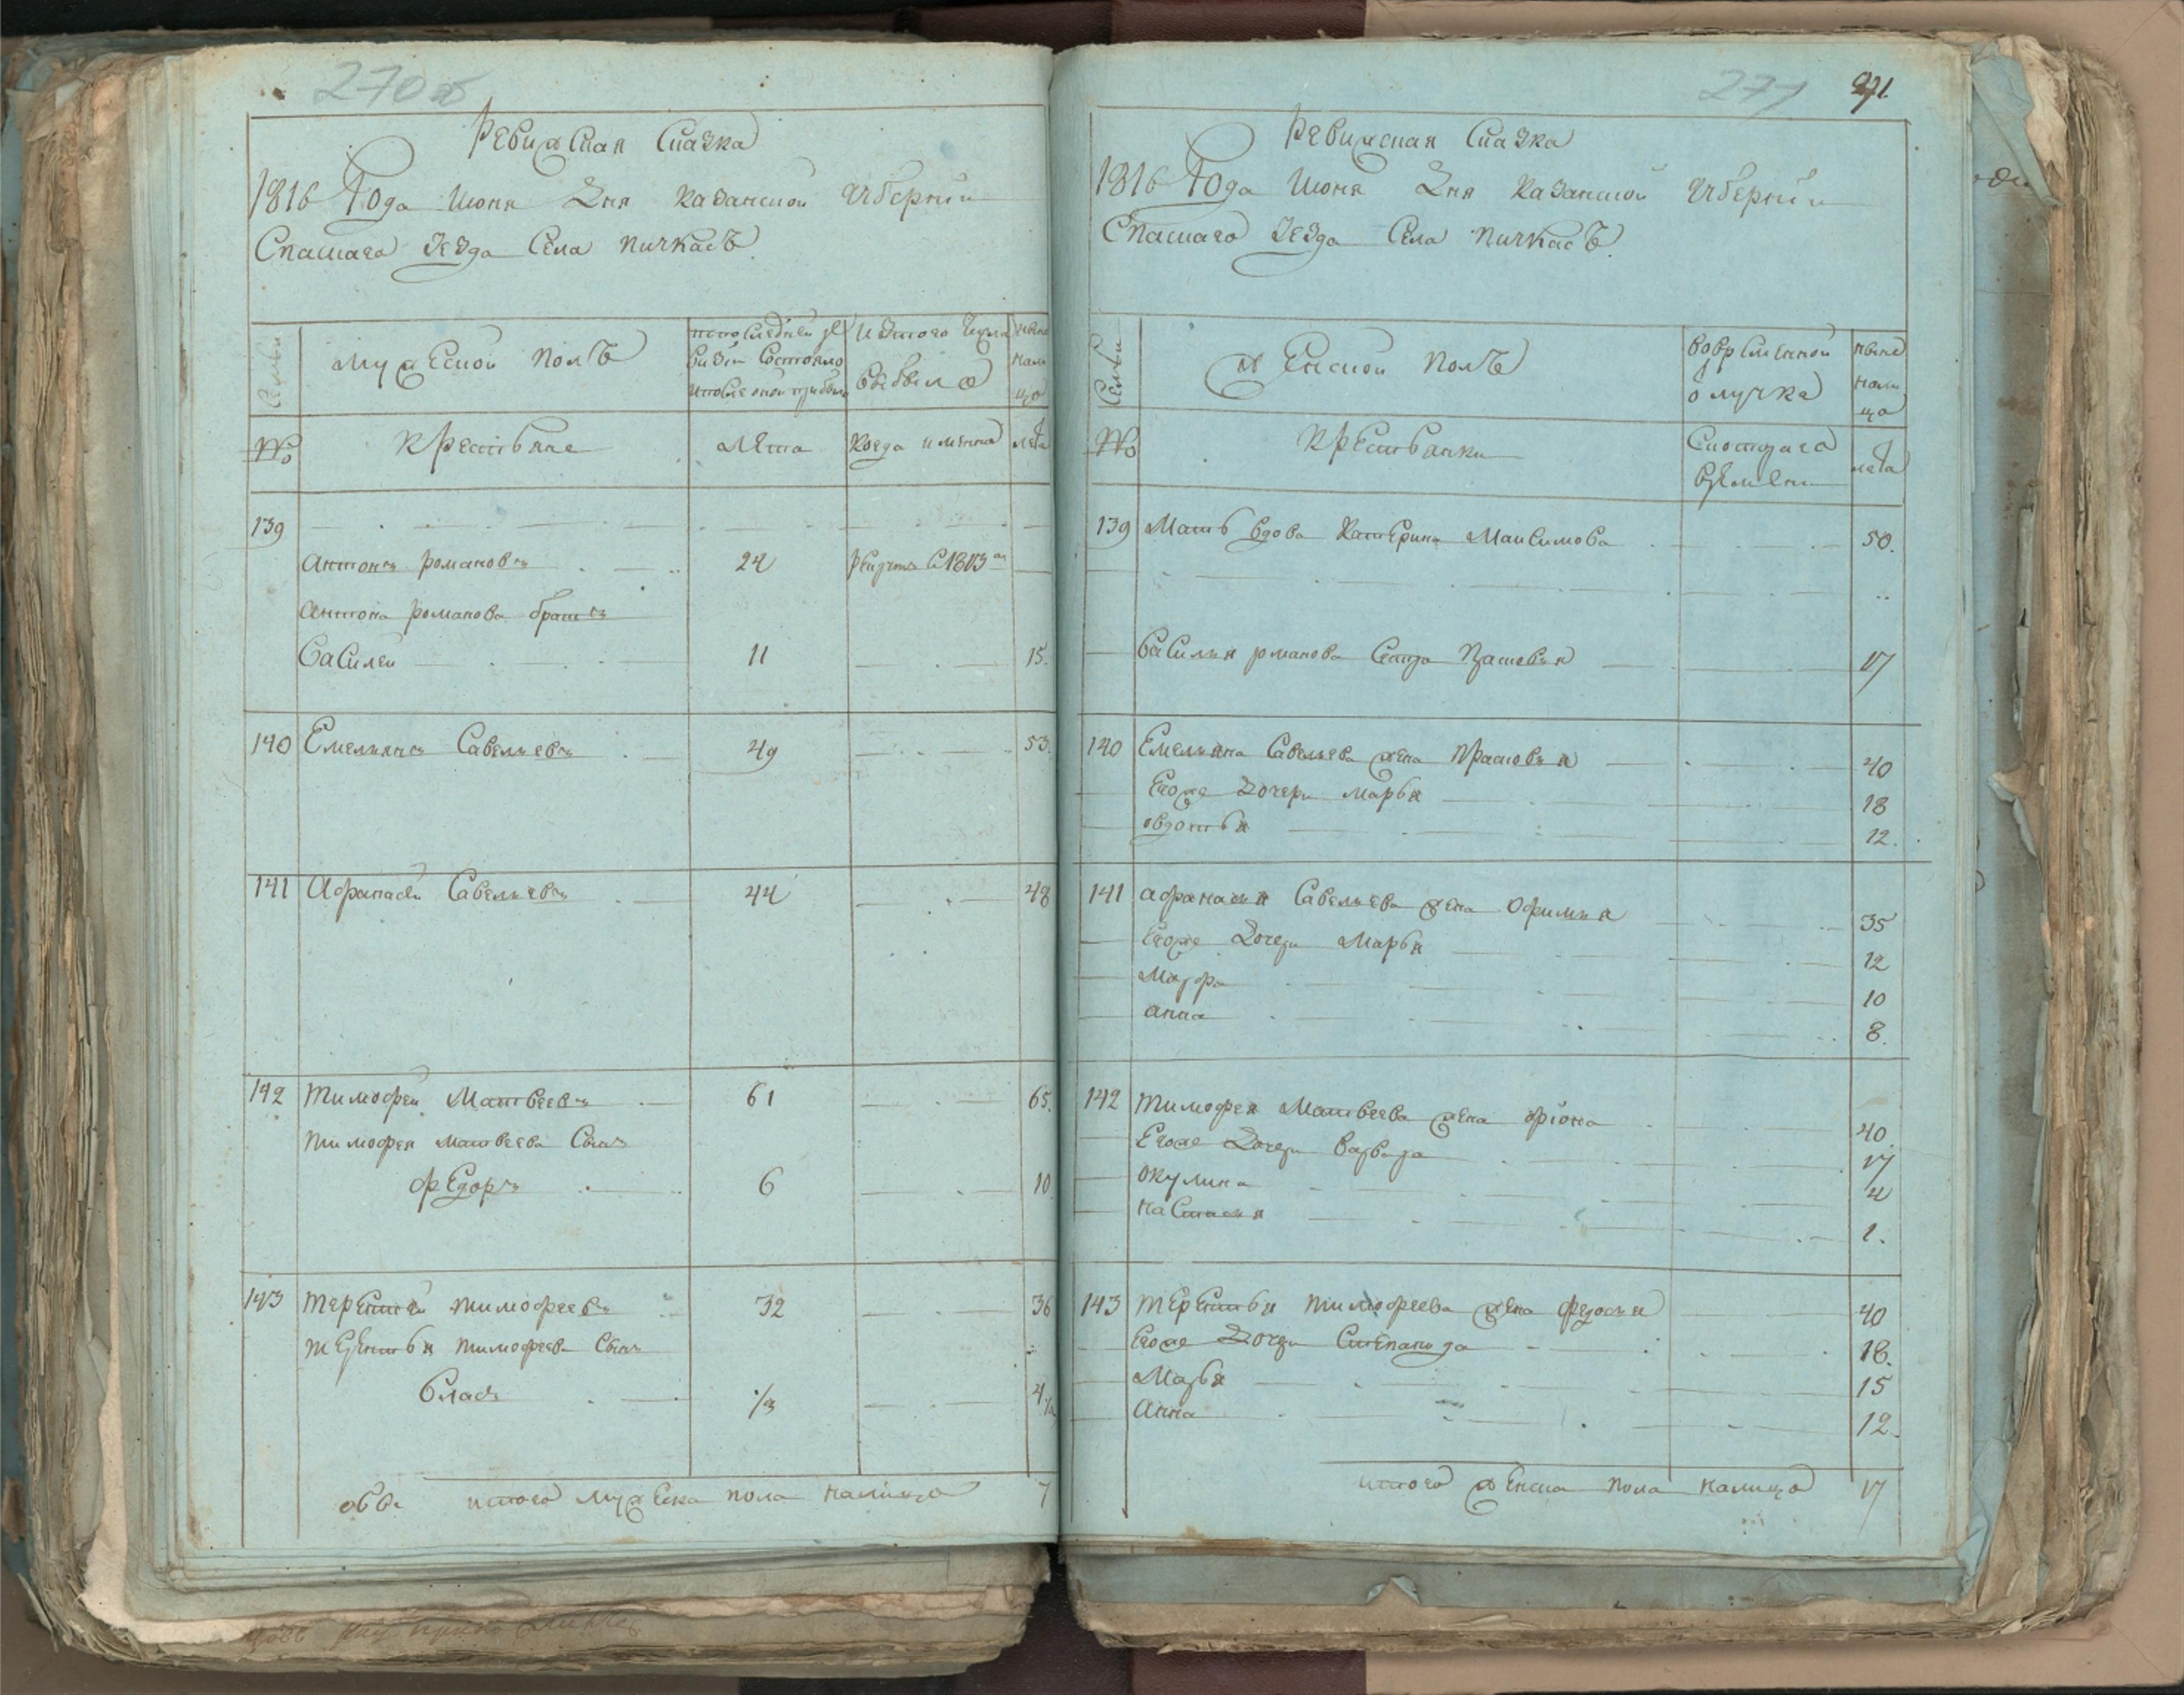 270об
Ревизская Сказка
1816 Года Июня Дня Казанской Губернии
Спаскаго Уезда Села Пичкасъ
Семьи
Мужеской полъ
по последней ревизии состояло и после оной прибыло
Изтого числа выбыло
ныне на лицо
№
Крестьяне
Лета
Когда имянно
лета
139
Антонъ романовъ 24 рекрутъ С 1813
Антона романова братъ
Василей 11 15.
140 Емельянъ Савельевъ 49 53.
141 Афанасей Савельевъ 44 48
142 Тимофей Матвеевъ 61 65.
Тимофея Матвеева Сынъ
Федоръ 6 10
143 Терентей Тимофеевъ 32 36
Терентья Тимофеева Сынъ
Власъ 1/2 4 1/2
итого мужеска пола налицо 7
271 271.
Ревизская Сказка
1816 Года Июня Дня Казанской Губернии
Спаскаго Уезда Села Пичкасъ.
Семьи
Женской полъ
Во временной отлучке
ныне на лицо
№
Крестьянки
С которого времени
лета
139 Мать вдова Катерина Максимова 50.
Василья романова Сестра Прасковья 17
140 Емельяна Савельева жена Прасковья 40
Егоже дочери Марья 18
Овдотья 12.
141 Афанасья Савельева жена Офимья 35
Егоже дочери Марья 12
Марфа 10
Анна 8.
142 Тимофея Матвеева жена 40.
Егоже дочери Варвара 17
Окулина 4
Настасья 1.
143 Терентья Тимофеева жена Федосья 40
Егоже дочери Степанида 18.
Марья 15
Анна 12.
итого женска пола налицо 17